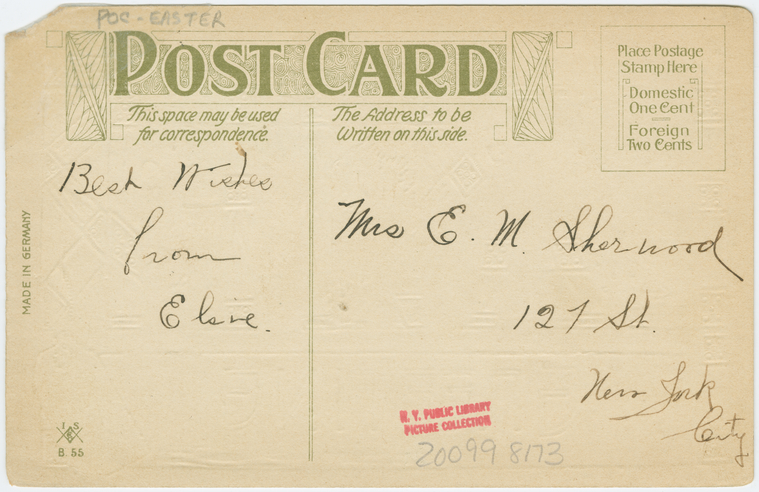 POC - EASTER
POST CARD
This space may be used
for correspondence.
The Address to be
Written on this side.
Place Postage
Stamp Here
Domestic
One Cent
Foreign
Two Cents
Best Wishes
from
Elsie.
Mrs E. M. Sherwood
127 St.
New York
City
MADE IN GERMANY
I S
B
B. 55
N. Y. PUBLIC LIBRARY
PICTURE COLLECTION
20099 8173